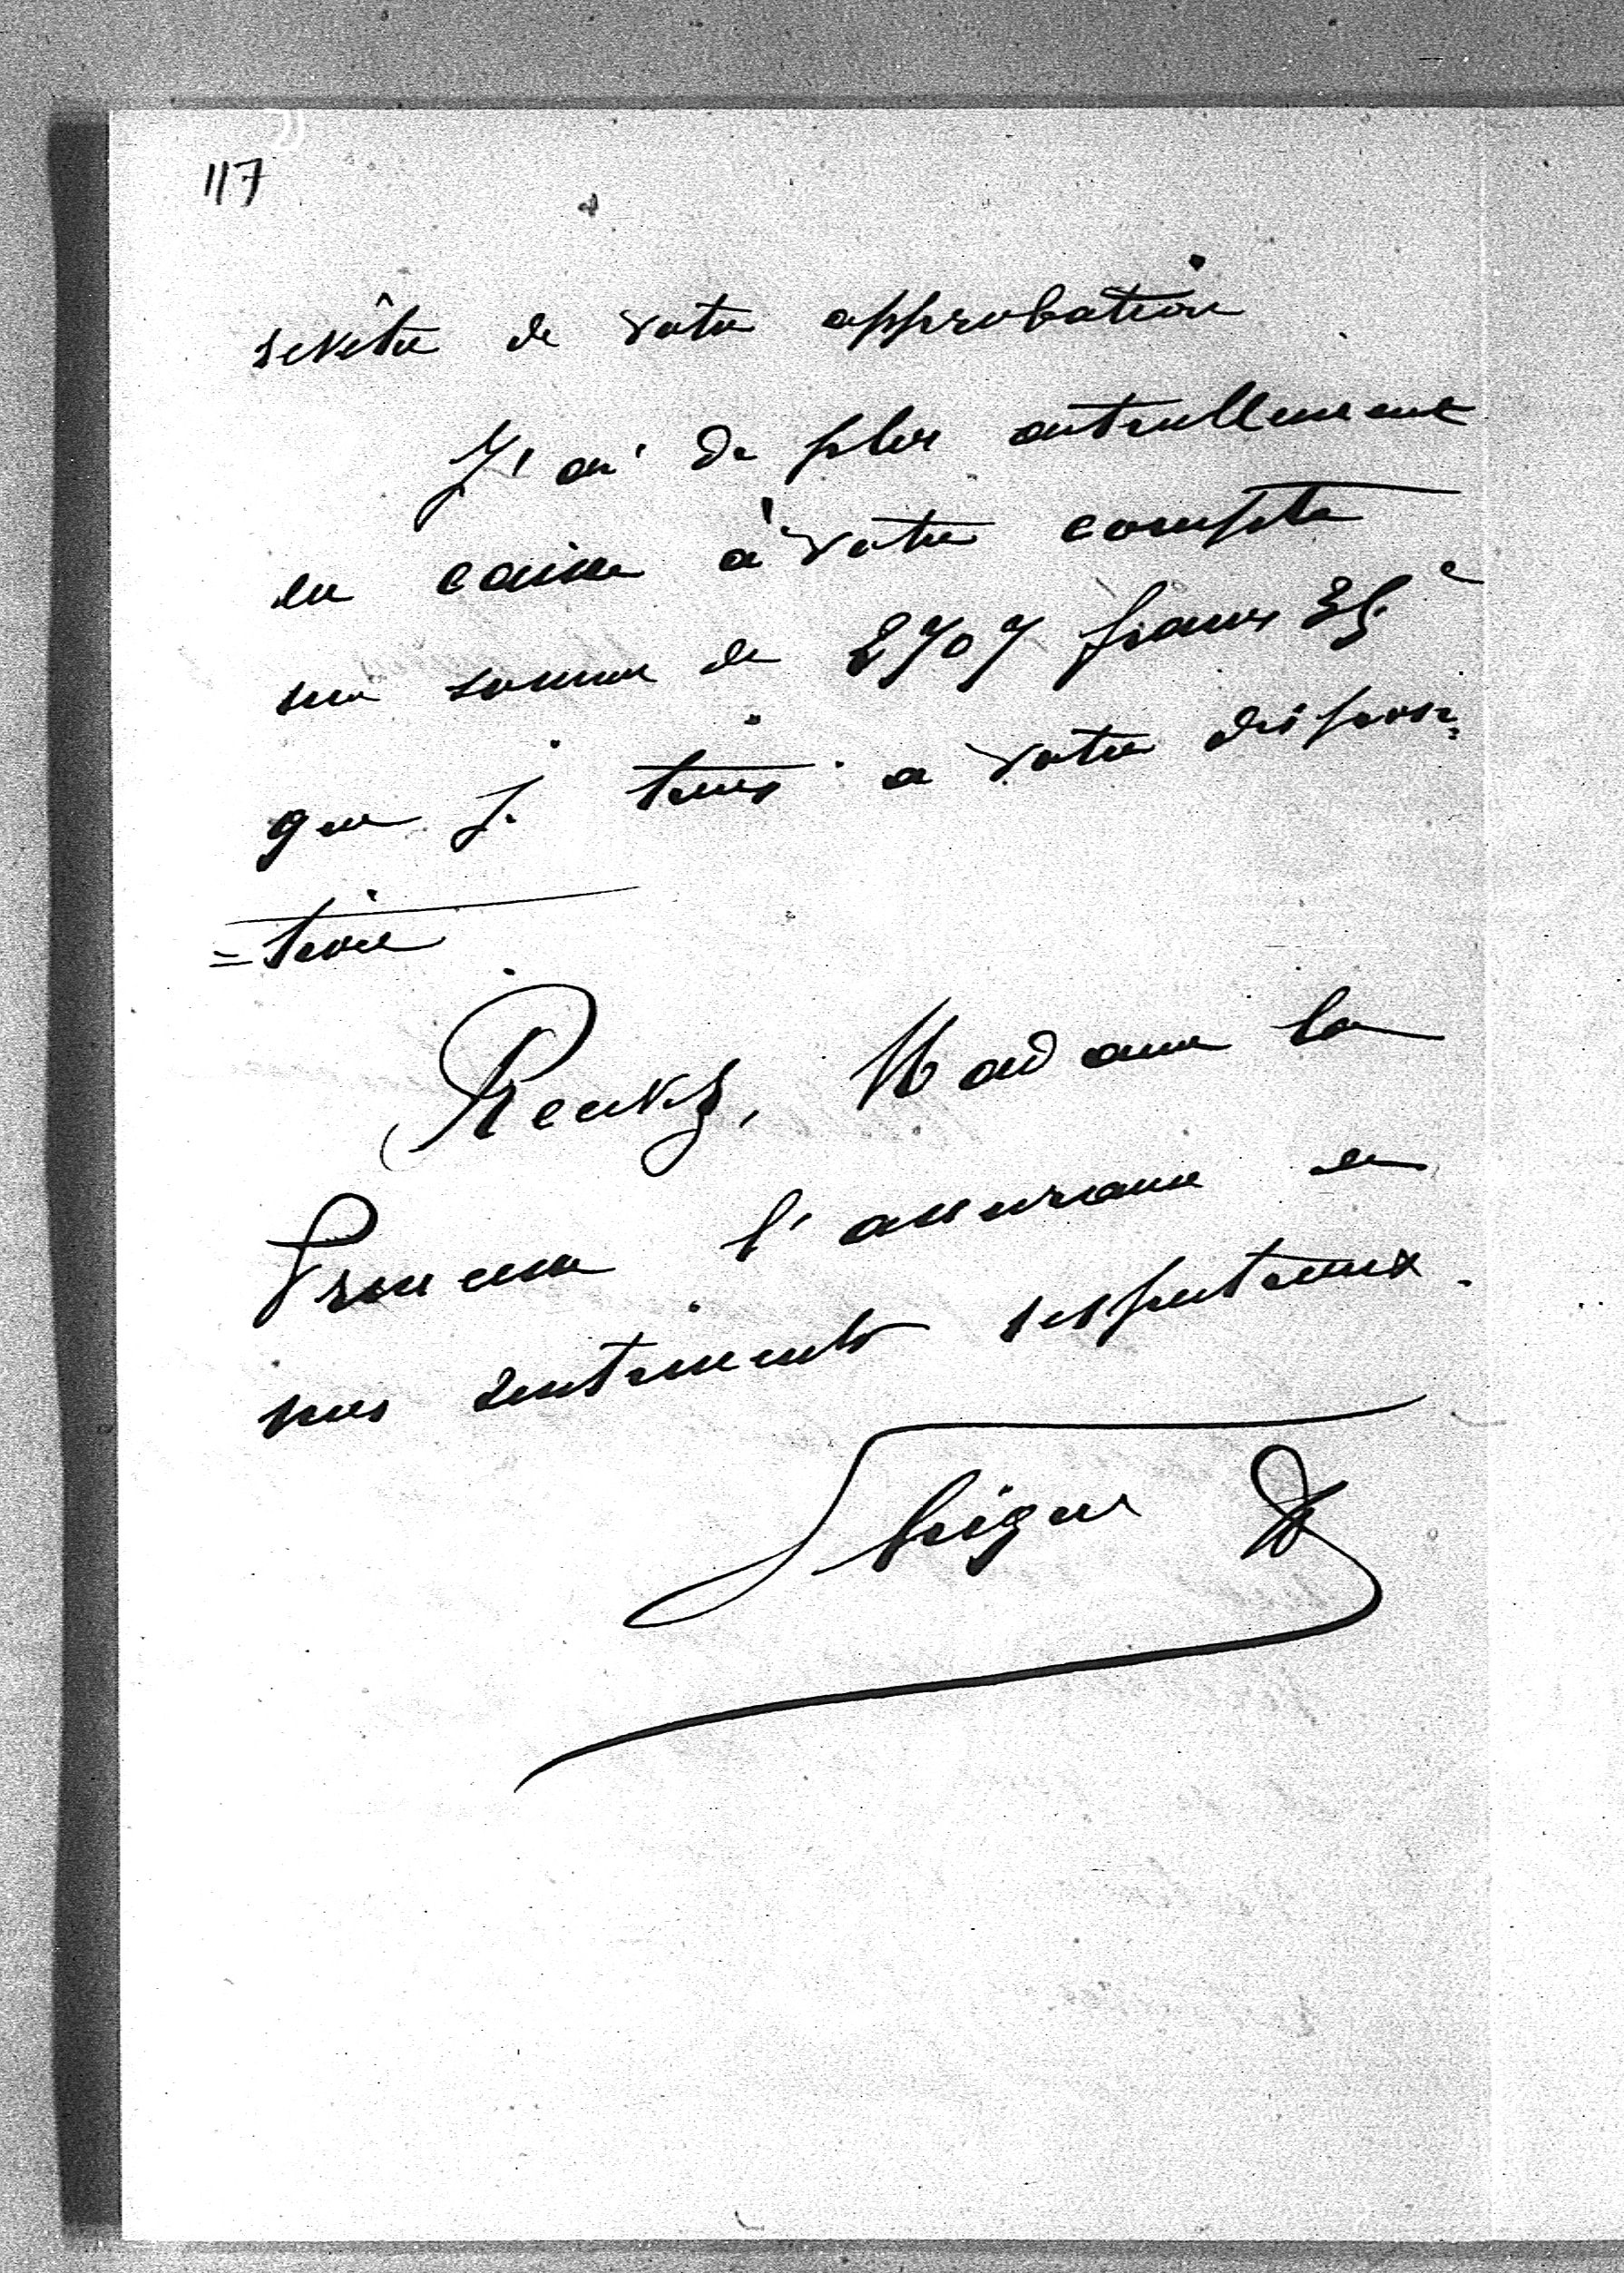 117
revêtu de votre approbation
J'ai de plus actuellement
en caisse à votre compte
une somme de 2707 francs 35c
que je tiens à votre disposi=
=tion
Recevez, Madame la
Princesse l'assurance de
mes sentiments respectueux.